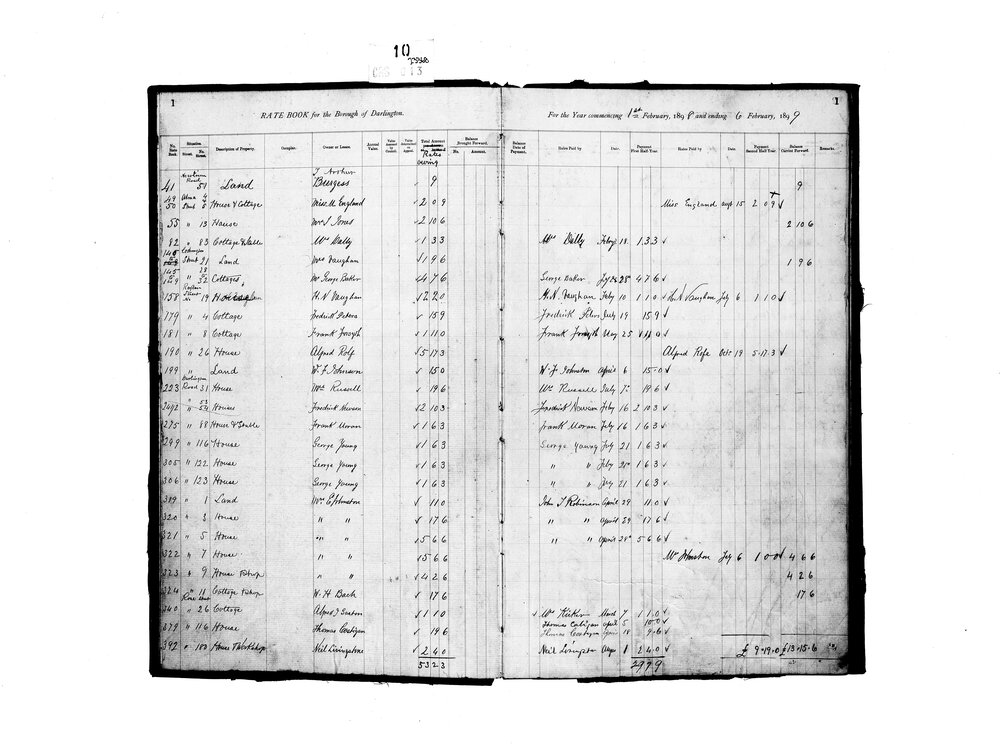 10
1
RATE BOOK for the Borough of Darlington.
For the Year commencing 1st February, 1898 and ending 6 February, 1899
1
No. Rate Book. Situation. Street. No. House. Description of Property. Occupier. Owner or Lessee. Annual Value. Total Amount Rates owing Balance Brought Forward. No. Amount. Date of Payment. Rates Paid by Date. Payment First Half-Year. Rates Paid by Date. Payment Second Half-Year Balance Carried Forward. Remarks.
41 Road 51 Land J Arthur Burgess 9 9
49 50 Alma Street 4 House & Cottage Miss M England 2 0 9 Miss England Augt 15 2 0 9
55 " 13 House Mrs S Jones 2 10 6 2 10 6
82 " 83 Cottage & Stable Mrs Dally 1 3 3 Mrs Dally Feby 18 1 3 3
Street 21 Land Mrs Vaughan 1 9 6 1 9 6
" 32 Cottages Mr George Baker 4 7 6 George Baker July 25 4 7 6
158 19 House H. N Vaughan 2 2 0 H. N. Vaughan Feby 10 1 1 0 H. N Vaughan July 6 1 1 0
179 " 4 Cottage Fredrick Peters 15 9 Fredrick Peters July 19 15 9
181 " 8 Cottage Frank Forsyth 1 1 0 Frank Forsyth May 25 1 1 0
190 " 26 House Alfred Rolf 5 17 3 Alfred Rofe Octr 19 5 17 3
199 " Land W. J Johnson 15 0 W. J Johnston April 6 15 0
223 Darlington Road 31 House Wm Russell 19 6 Wm Russell July 7 19 6
" 53 54 Houses Fredrick Newson 2 10 3 Fredrick Newson Feby 16 2 10 3
275 " 88 House & Stable Frank Moran 1 6 3 Frank Moran July 16 1 6 3
299 " 116 House George Young 1 6 3 George Young July 21 1 6 3
305 " 122 House George Young 1 6 3 " " July 21 1 6 3
306 " 123 House George Young 1 6 3 " " July 21 1 6 3
319 " 1 Land Wm E Johnston 11 0 John T Robinson April 29 11 0
320 " 3 House " " 17 6 " " April 29 17 6
321 " 5 House " " 5 6 6 " " April 28 5 6 6
322 " 7 House " " 5 6 6 Mr Johnston July 6 1 0 0 4 6 6
323 " 9 House & Shop " " 4 2 6 4 2 6
324 " 11 Cottage & Shop W. H Bach 17 6 17 6
340 Rose Street " 26 Cottage Alfred J Seaton 1 1 0 Wm Kirker March 7 1 1 0
Thomas Costigan April 5 10 0
379 " 116 House Thomas Costigan 19 6 Thomas Costigan 18 9 6
392 " 180 House & Workshop Neil Livingstone 2 4 0 Neil Livingston Augt 8 2 4 0 £ 9 19 0 £13 15 6
53 2 3 29 9 9